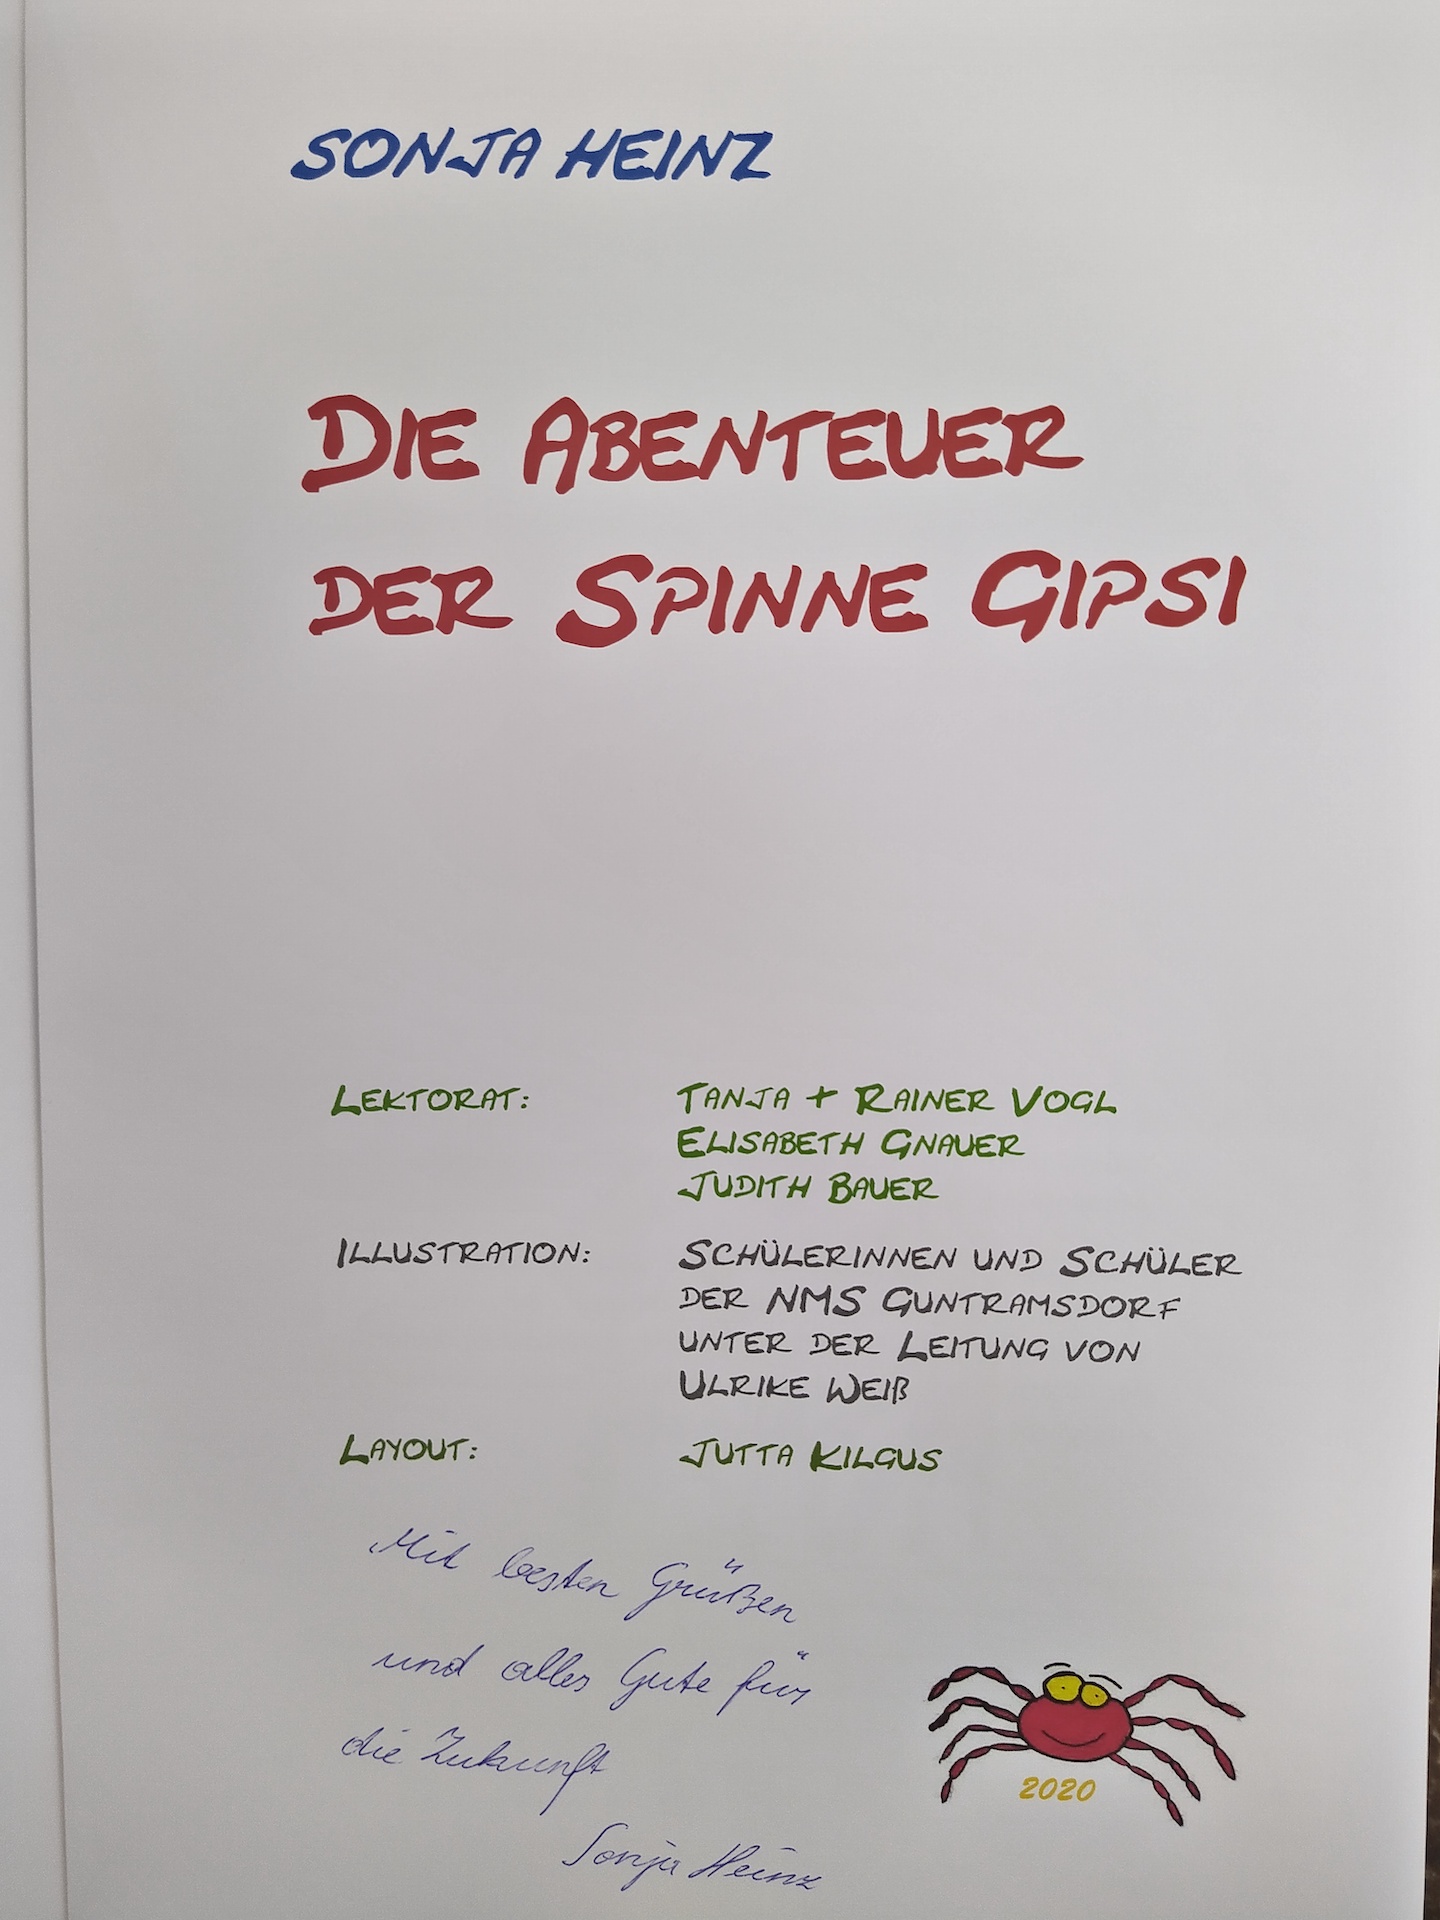 SONJA HEINZ
DIE ABENTEUER
DER SPINNE GIPSI
LEKTORAT: TANJA + RAINER VOGL
ELISABETH GNAUER
JUDITH BAUER
ILLUSTRATION: SCHÜLERINNEN UND SCHÜLER
DER NMS GUNTRAMSDORF
UNTER DER LEITUNG VON
ULRIKE WEIß
LAYOUT: JUTTA KILGUS
Mit besten Grüßen
und alles Gute für
die Zukunft
Sonja Heinz
2020